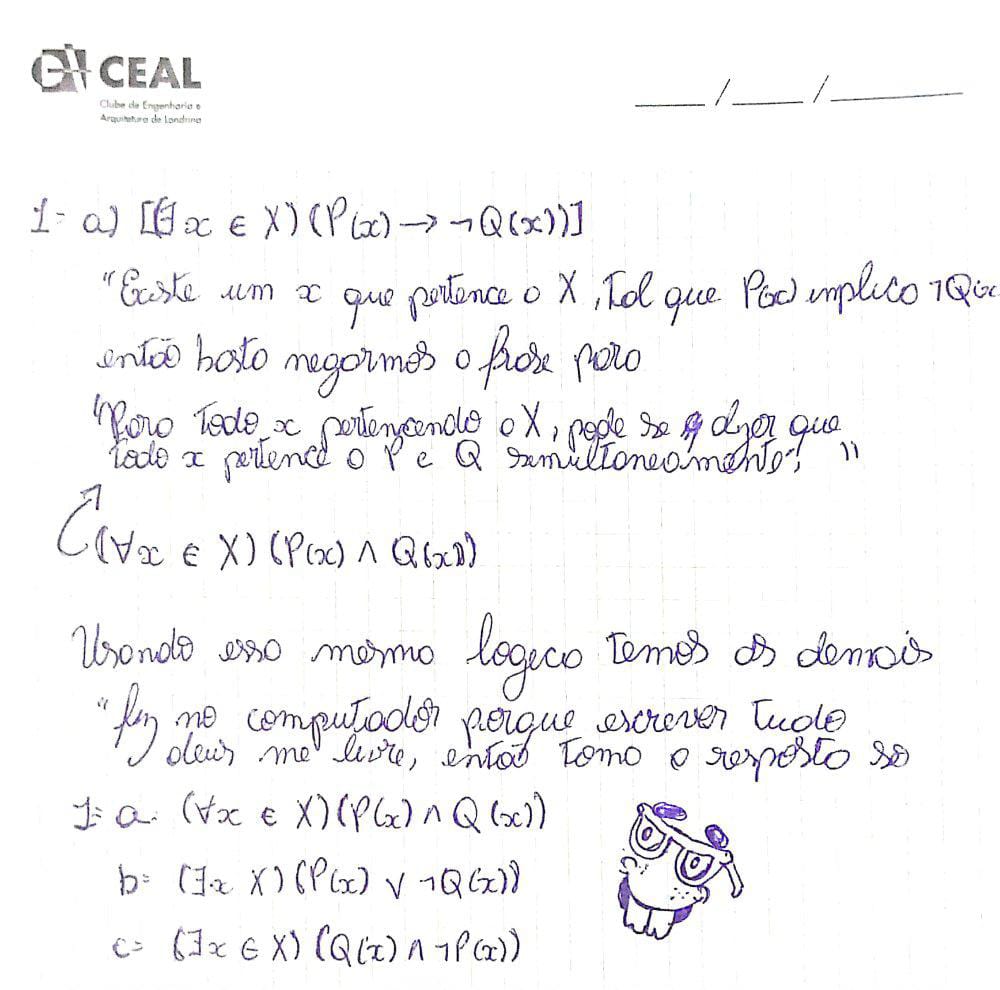 CEAL
Clube de Engenharia e
Arquitetura de Londrina
___/___/______
1= a) [(∃x ∈ X)(P(x) → ¬Q(x))]
"Existe um x que pertence a X, tal que P(x) implica ¬Q(x
então basta negarmos a frase para
"Para todo x pertencendo a X, pode se dizer que
todo x pertence a P e Q simultaneamente! "
(∀x ∈ X)(P(x) ∧ Q(x))
Usando essa mesma lógica temos as demais
"fiz no computador porque escrever tudo
deus me livre, então toma a resposta so
1= a. (∀x ∈ X)(P(x) ∧ Q(x))
b= (∃x X)(P(x) ∨ ¬Q(x))
c= (∃x ∈ X)(Q(x) ∧ ¬P(x))